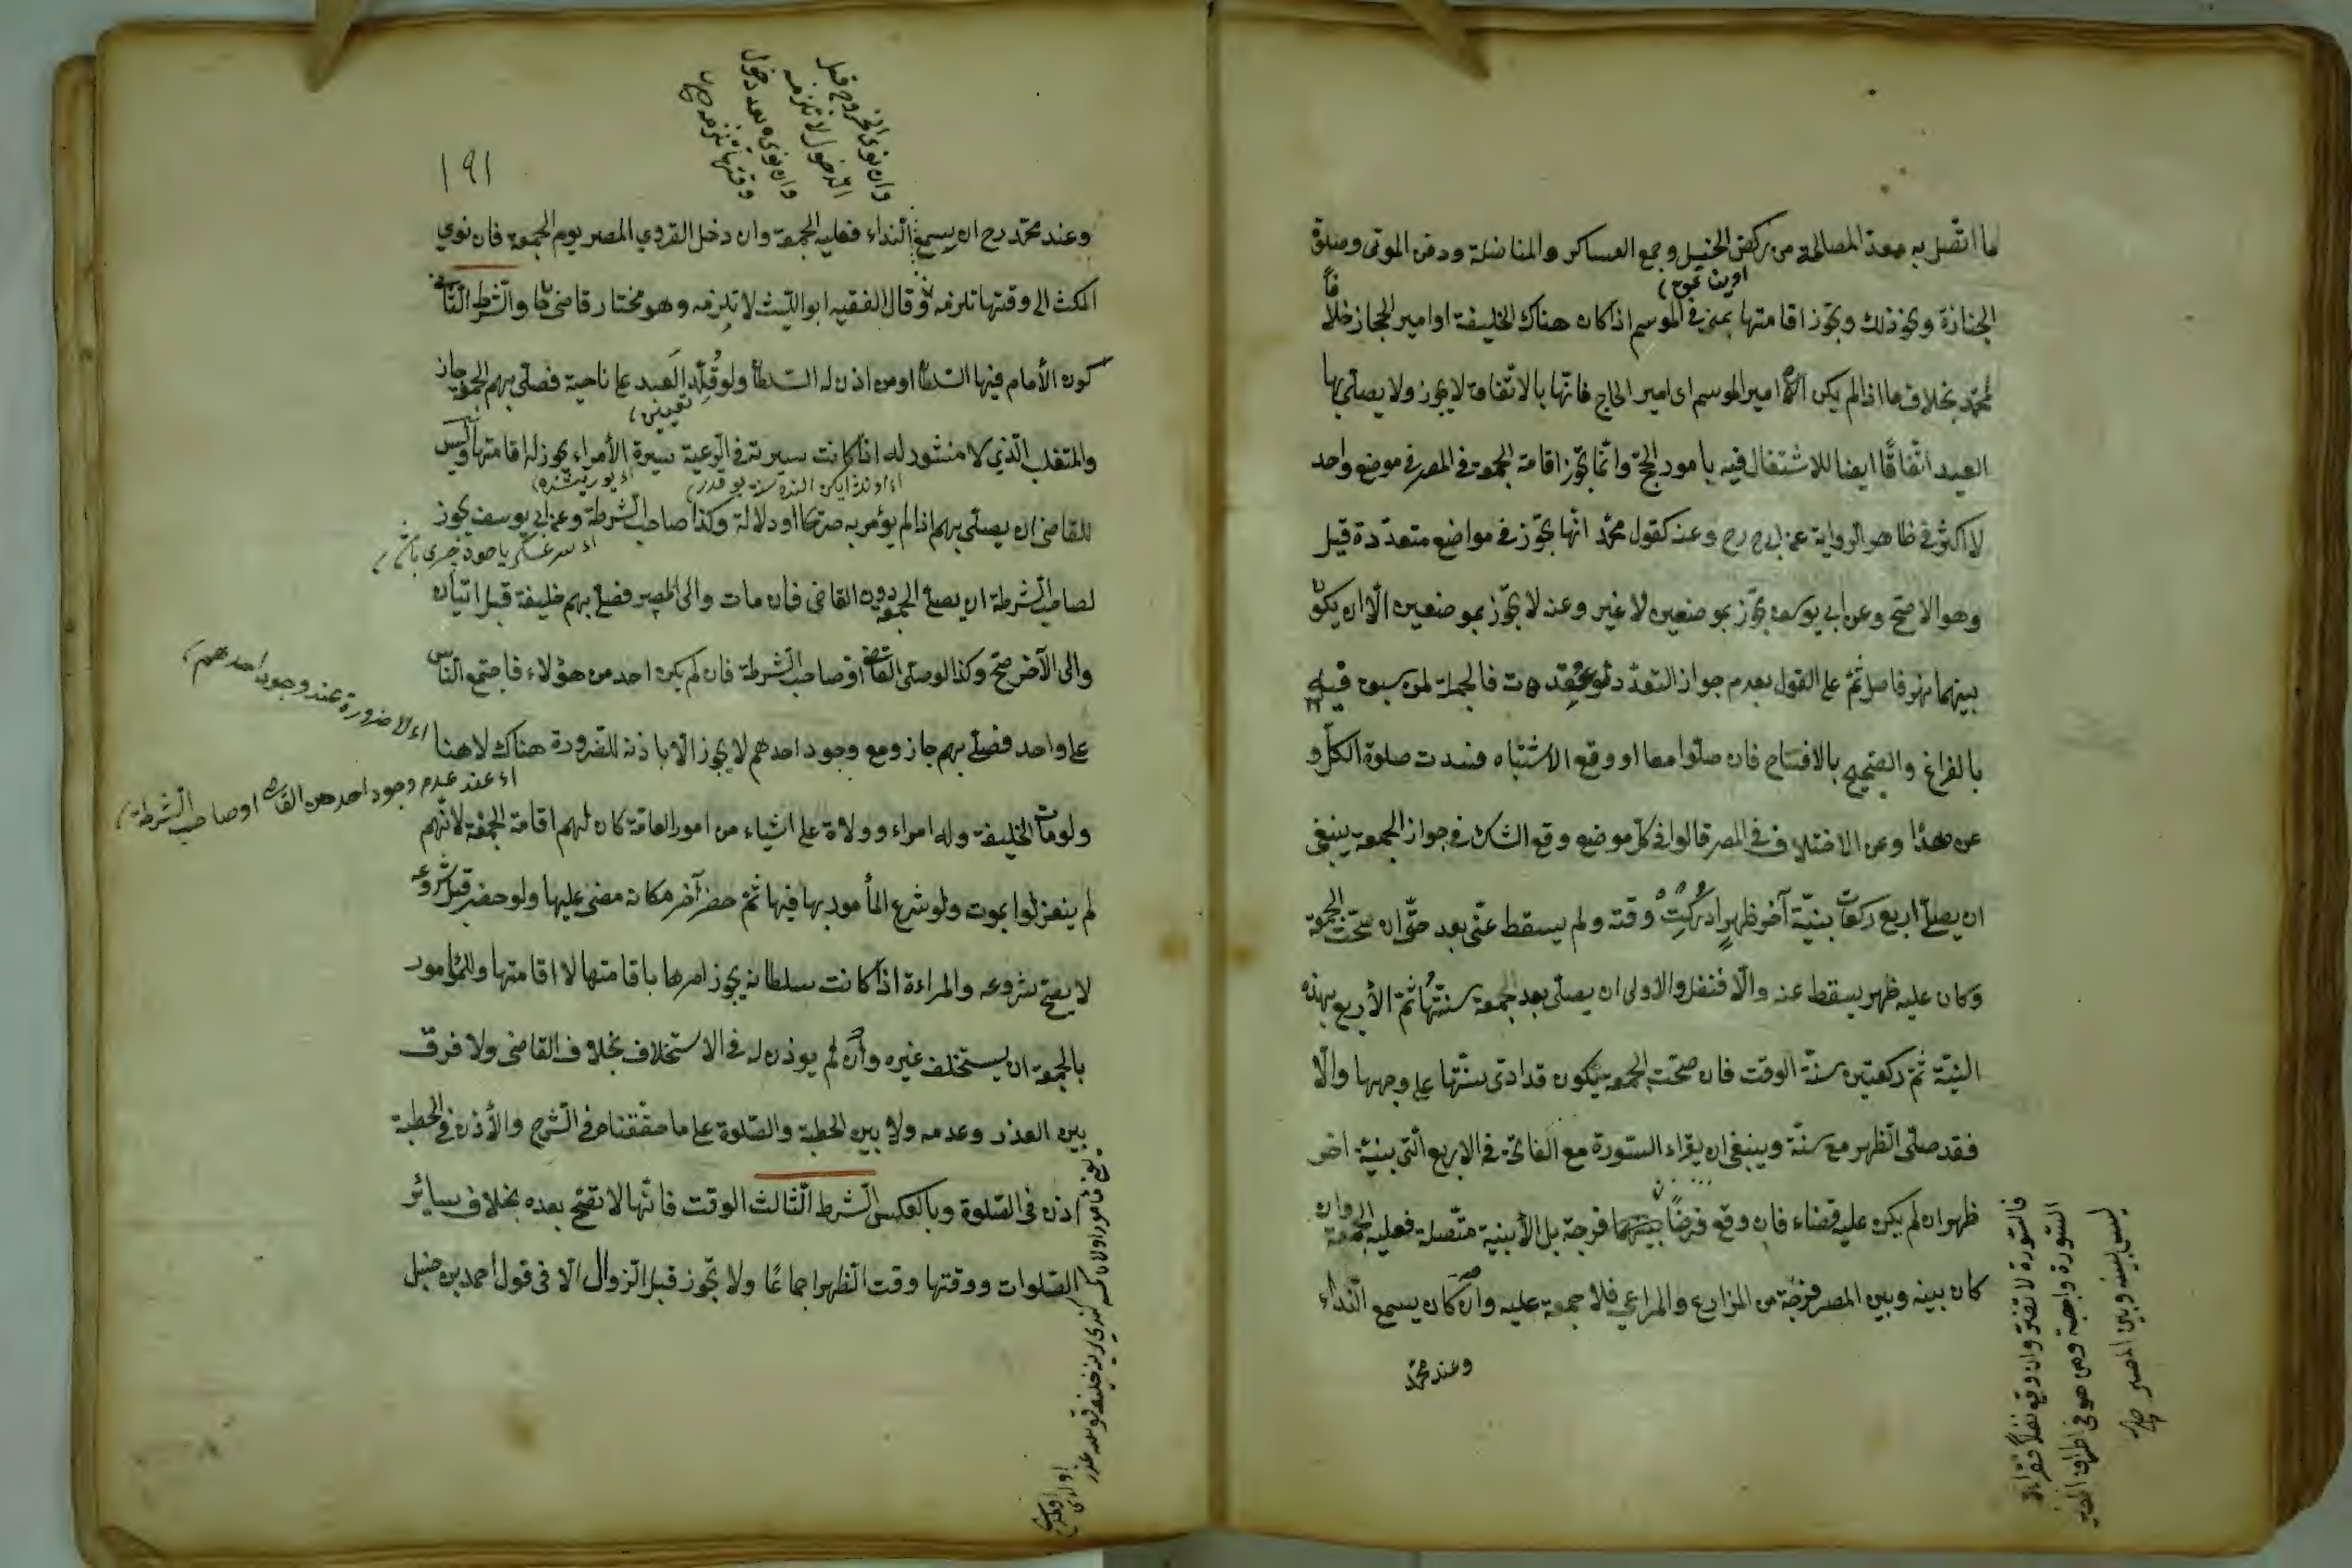 ما اتصل به معدا لمصالحه من ركض الخيل وجمع العساكر والمناضلة ودفن الموتى وصلوة
الجنازة ونحو ذلك ويجوز اقامتها بمنى في الموسم اذا كان هناك الخليفة او امير الحجاز خلافا
لمحمد بخلاف ما اذا لم يكن الا امير الموسم اى امير الحاج فانها بالاتفاق لا يجوز ولا يصلى بها
العيد اتفاقًا ايضا للاشتغال فيه بامور الحج وانما تجوز اقامة الجمعة في المصر في موضع واحد
لا اكثر في ظاهر الرواية عن ابى ح رح وعنه كقول محمد انها يجوز في مواضع متعددة قيل
وهو الاصح وعن ابي يوسف يجوز بموضعين لا غير وعنه لا يجوز بموضعين الا ان يكون
بينهما نهر فاصل ثم على القول بعدم جواز التعدد لو عقدت فالجمعة لمن سبق قيل
بالفراغ والصحيح بالافتتاح فان صلوا معا او وقع الاشتباه فسدت صلوة الكل و
عن هذا وعن الاختلاف في المصر قالوا في كل موضع وقع الشك في جواز الجمعة ينبغي
ان يصلى اربع ركعات بنية آخر ظهر ادركت وقته ولم يسقط عنى بعد حتى ان صحت الجمعة
وكان عليه ظهر يسقط عنه والا فنفل والاولى ان يصلى بعد الجمعة سنتها ثم الأربع بهذه
النية ثم ركعتين سنة الوقت فان صحت الجمعة يكون قد ادى سنتها على وجهها والا
فقد صلى الظهر مع سنة وينبغي ان يقراء السورة مع الفاتحة في الاربع التى بنية اخر
ظهر ان لم يكن عليه قضاء فان وقع فرضًا بينهما فرجة بل الأبنية متصلة فعليه الجمعة وان
كان بينه وبين المصر فرجة من المزارع والمراعي فلا جمعة عليه وان كان يسمع النداء
وعند محمد
فالسورة لا تضر وان وقع نفلًا فقراءة
السورة واجبة ومن هو في اطراف المصر
ليس بينه وبين المصر صح
١٩١
وان نوى الخروج قبل
الدخول لا تلزمه
وان نوى بعد دخول
وقتها تلزمه ص
وعند محمد رح ان يسمع النداء فعليه الجمعة وان دخل القروي المصر يوم الجمعة فان نوي
المكث الى وقتها تلزمه وقال الفقيه ابو الليث لا تلزمه وهو مختار قاضى خان والشرط الثانى
كون الأمام فيها السلطان او من اذن له السلطان ولو قلد العبد على ناحية فصلى بهم الجمعة جاز
والمتغلب الذي لا منشور له اذا كانت سيرته في الرعية سيرة الأمراء يجوز له اقامتها وليس
للقاضى ان يصلى بهم اذا لم يؤمر به صريحا او دلالة وكذا صاحب الشرطة وعن ابي يوسف يجوز
لصاحب الشرطة ان يصلى الجمعة دون القاضى فان مات والى المصر فصلى بهم خليفة قبل اتيان
والى الآخر صح وكذا لو صلى القاضى او صاحب الشرطة فان لم يكن احد من هؤلاء فاجتمع الناس
على واحد فصلى بهم جاز ومع وجود احدهم لا يجوز الا باذنه للضرورة هناك لا هنا
اى لا ضرورة عند وجود احدهم
اى عند عدم وجود احد من القاضى او صاحب الشرطة
ولو مات الخليفة وله امراء وولاة على اشياء من امور العامة كان لهم اقامة الجمعة لانهم
لم ينعزلوا بموت ولو شرع المأمور بها فيها ثم حضر آخر مكانه مضى عليها ولو حضر قبل شروعه
لا يصح شروعه والمراءة اذا كانت سلطانه يجوز امرها باقامتها لا اقامتها وللمأمور
بالجمعة ان يستخلف غيره وان لم يوذن له في الاستخلاف بخلاف القاضى ولا فرق
بين العذر وعدمه ولا بين الخطبة والصلوة على ما حققناه في الشرح والأذن في الخطبة
اذن في الصلوة وبالعكس الشرط الثالث الوقت فانها لا تصح بعده بخلاف سائر
الصلوات ووقتها وقت الظهر اجماعًا ولا يجوز قبل الزوال الا في قول احمد بن حنبل